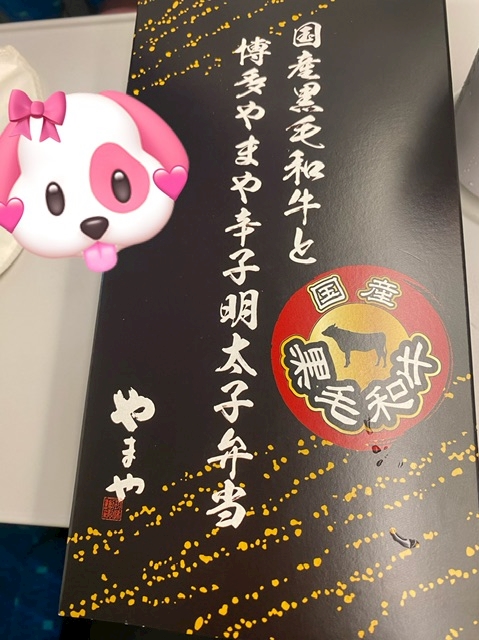 国産黒毛和牛と
博多やまや辛子明太子弁当
やまや
国産
黒毛和牛